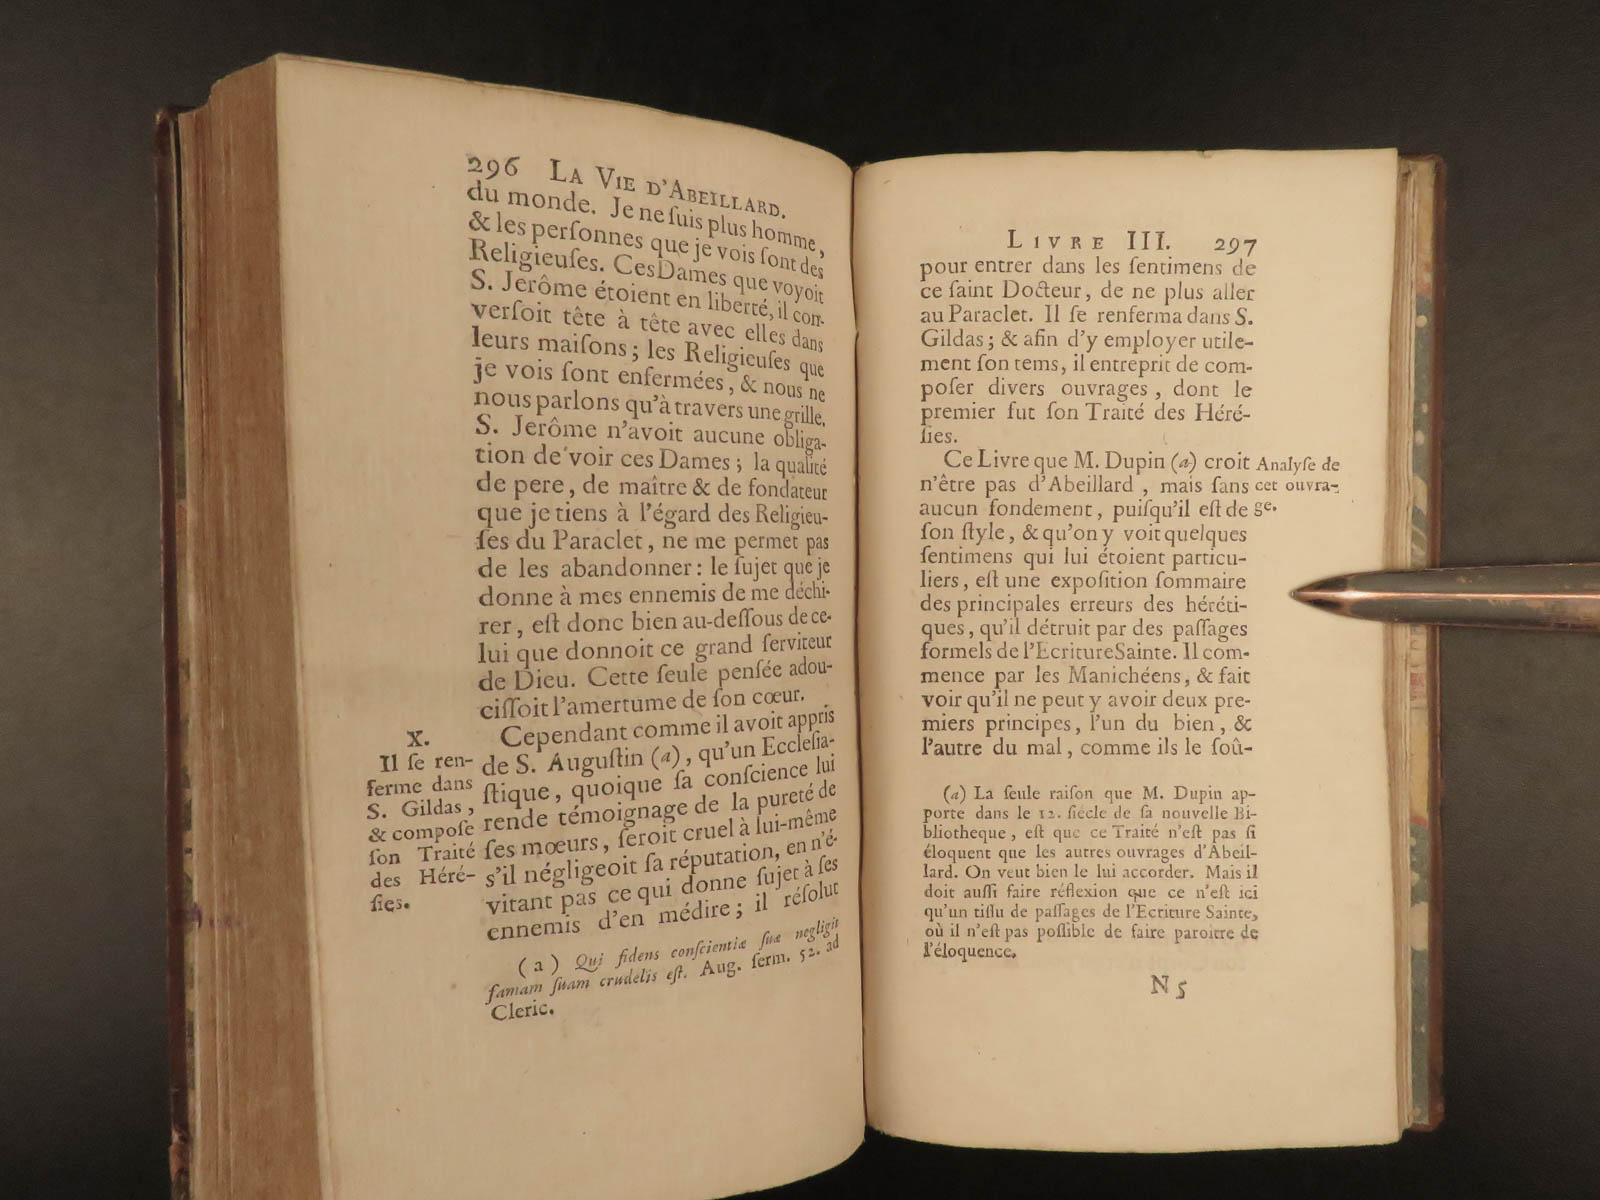 296 LA VIE D'ABEILLARD.
du monde. Je ne ſuis plus homme,
& les perſonnes que je vois ſont des
Religieuſes. Ces Dames que voyoit
S. Jerôme étoient en liberté, il con-
verſoit tête à tête avec elles dans
leurs maiſons; les Religieuſes que
je vois ſont enfermées, & nous ne
nous parlons qu'à travers une grille.
S. Jerôme n'avoit aucune obliga-
tion de voir ces Dames; la qualité
de pere, de maître & de fondateur
que je tiens à l'égard des Religieu-
ſes du Paraclet, ne me permet pas
de les abandonner: le ſujet que je
donne à mes ennemis de me déchi-
rer, eſt donc bien au-deſſous de ce-
lui que donnoit ce grand ſerviteur
de Dieu. Cette ſeule penſée adou-
ciſſoit l'amertume de ſon cœur.
X.
Il ſe ren-
ferme dans
S. Gildas,
& compoſe
ſon Traité
des Héré-
ſies.
Cependant comme il avoit appris
de S. Auguſtin (a), qu'un Eccleſia-
ſtique, quoique ſa conſcience lui
rende témoignage de la pureté de
ſes mœurs, ſeroit cruel à lui-même
s'il négligeoit ſa réputation, en n'é-
vitant pas ce qui donne ſujet à ſes
ennemis d'en médire; il réſolut
(a) Qui fidens conſcientiæ ſuæ negligit
famam ſuam crudelis eſt. Aug. ſerm. 52. ad
Cleric.
LIVRE III. 297
pour entrer dans les ſentimens de
ce ſaint Docteur, de ne plus aller
au Paraclet. Il ſe renferma dans S.
Gildas; & afin d'y employer utile-
ment ſon tems, il entreprit de com-
poſer divers ouvrages, dont le
premier fut ſon Traité des Héré-
ſies.
Ce Livre que M. Dupin (a) croit
n'être pas d'Abeillard, mais ſans
aucun fondement, puiſqu'il eſt de
ſon ſtyle, & qu'on y voit quelques
ſentimens qui lui étoient particu-
liers, eſt une expoſition ſommaire
des principales erreurs des héréti-
ques, qu'il détruit par des paſſages
formels de l'Ecriture Sainte. Il com-
mence par les Manichéens, & fait
voir qu'il ne peut y avoir deux pre-
miers principes, l'un du bien, &
l'autre du mal, comme ils le ſoû-
Analyſe de
cet ouvra-
ge.
(a) La ſeule raiſon que M. Dupin ap-
porte dans le 12. ſiécle de ſa nouvelle Bi-
bliotheque, eſt que ce Traité n'eſt pas ſi
éloquent que les autres ouvrages d'Abeil-
lard. On veut bien le lui accorder. Mais il
doit auſſi faire réflexion que ce n'eſt ici
qu'un tiſſu de paſſages de l'Ecriture Sainte,
où il n'eſt pas poſſible de faire paroître de
l'éloquence.
N 5